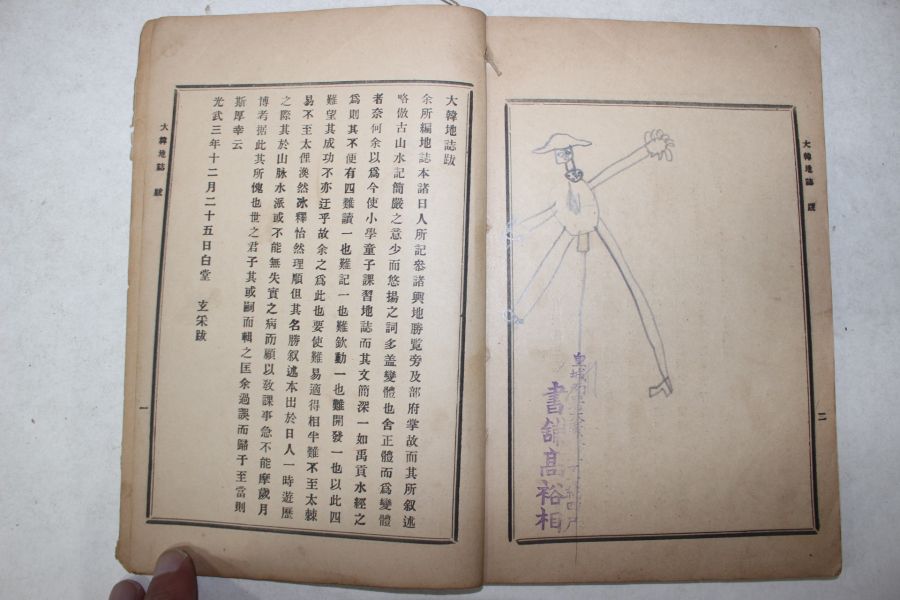 大韓地誌跋
余所編地誌本諸日人所記參諸輿地勝覽旁及部府掌故而其所叙述
略倣古山水記簡嚴之意少而悠揚之詞多盖變體也舍正體而爲變體
者奈何余以爲今使小學童子課習地誌而其文簡深一如禹貢水經之
爲則其不便有四難讀一也難記一也難欽動一也難開發一也以此四
難望其成功不亦迂乎故余之爲此也要使難易適得相半難不至太棘
易不至太俚渙然冰釋怡然理順但其名勝叙述本出於日人一時遊歷
之際其於山脉水派或不能無失實之病而顧以敎課事急不能摩歲月
博若据此其所愧也世之君子其或嗣而輯之匡余過誤而歸于至當則
斯厚幸云
光武三年十二月二十五日白堂 玄采跋
大韓地誌 跋
一
大韓地誌 跋
二
皇城
書舖高裕相